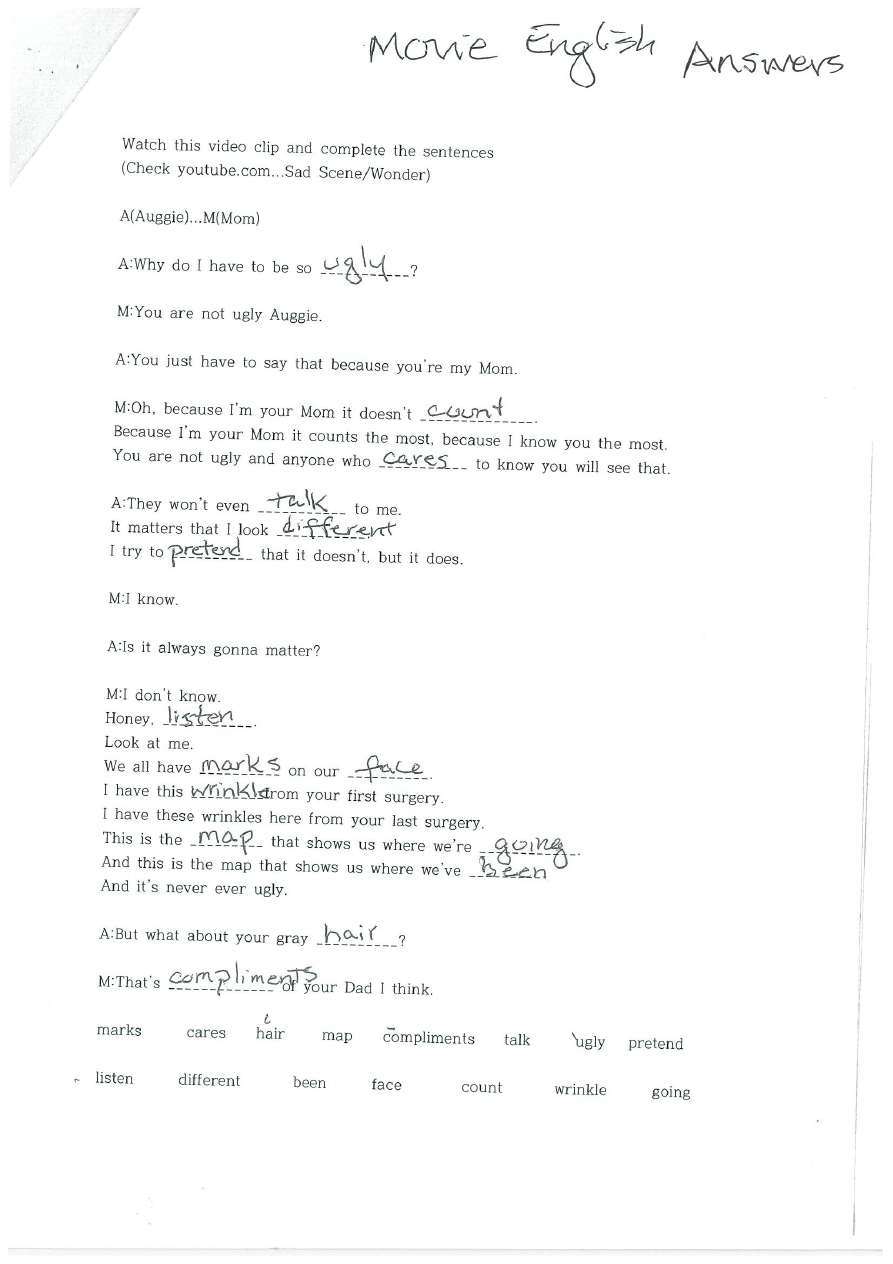 Movie English Answers
Watch this video clip and complete the sentences
(Check youtube.com...Sad Scene/Wonder)
A(Auggie)...M(Mom)
A:Why do I have to be so ugly?
M:You are not ugly Auggie.
A:You just have to say that because you're my Mom.
M:Oh, because I'm your Mom it doesn't count.
Because I'm your Mom it counts the most, because I know you the most.
You are not ugly and anyone who cares to know you will see that.
A:They won't even talk to me.
It matters that I look different
I try to pretend that it doesn't, but it does.
M:I know.
A:Is it always gonna matter?
M:I don't know.
Honey, listen.
Look at me.
We all have marks on our face.
I have this wrinkle from your first surgery.
I have these wrinkles here from your last surgery.
This is the map that shows us where we're going.
And this is the map that shows us where we've been
And it's never ever ugly.
A:But what about your gray hair?
M:That's compliments of your Dad I think.
marks cares hair map compliments talk ugly pretend
listen different been face count wrinkle going